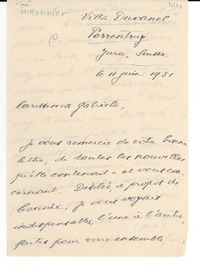 Villa Duvanel
Porrentruy
Jura, Suisse
le 11 juin 1951
Carissima Gabriela,
je vous remercie de cette bonne
lettre, de toutes les nouvelles
qu'elle contenait - et vous con-
cernant. Désolée, à propos de
Connie, je vous voyais
indispensables, l'une à l'autre,
faites pour vivre ensemble.